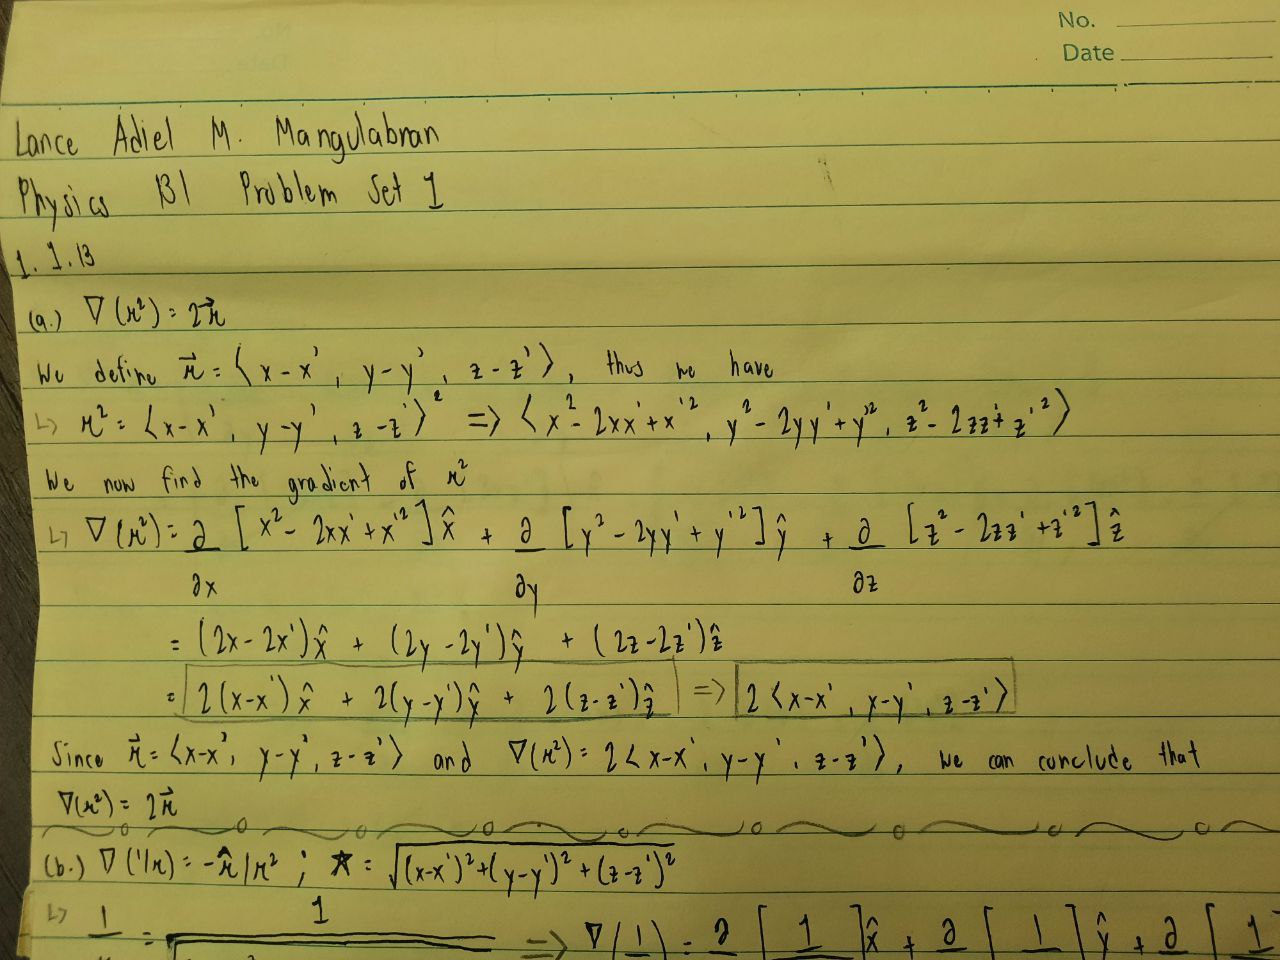 No.
Date
Lance Adiel M. Mangulabran
Physics 131 Problem Set 1
1. 1.13
(a.) ∇(r²) = 2r⃗
We define r⃗ = ⟨x-x', y-y', z-z'⟩, thus we have
↳ r² = ⟨x-x', y-y', z-z'⟩² => ⟨x²-2xx'+x'², y²-2yy'+y'², z²-2zz'+z'²⟩
We now find the gradient of r²
↳ ∇(r²) = ∂/∂x [x²-2xx'+x'²]x̂ + ∂/∂y [y²-2yy'+y'²]ŷ + ∂/∂z [z²-2zz'+z'²]ẑ
= (2x-2x')x̂ + (2y-2y')ŷ + (2z-2z')ẑ
= 2(x-x')x̂ + 2(y-y')ŷ + 2(z-z')ẑ => 2⟨x-x', y-y', z-z'⟩
Since r⃗ = ⟨x-x', y-y', z-z'⟩ and ∇(r²) = 2⟨x-x', y-y', z-z'⟩, we can conclude that
∇(r²) = 2r⃗
(b.) ∇(1/r) = -r̂/r² ; * = √((x-x')²+(y-y')²+(z-z')²)
↳ 1 = 1 => ∇(1 = ∂ [1]x̂ + ∂ [1]ŷ + ∂ [1